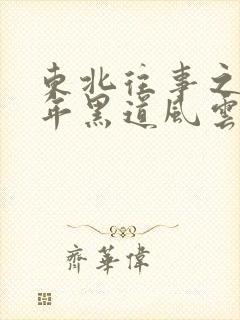 東北往事之
年黑道風雲
齊華偉